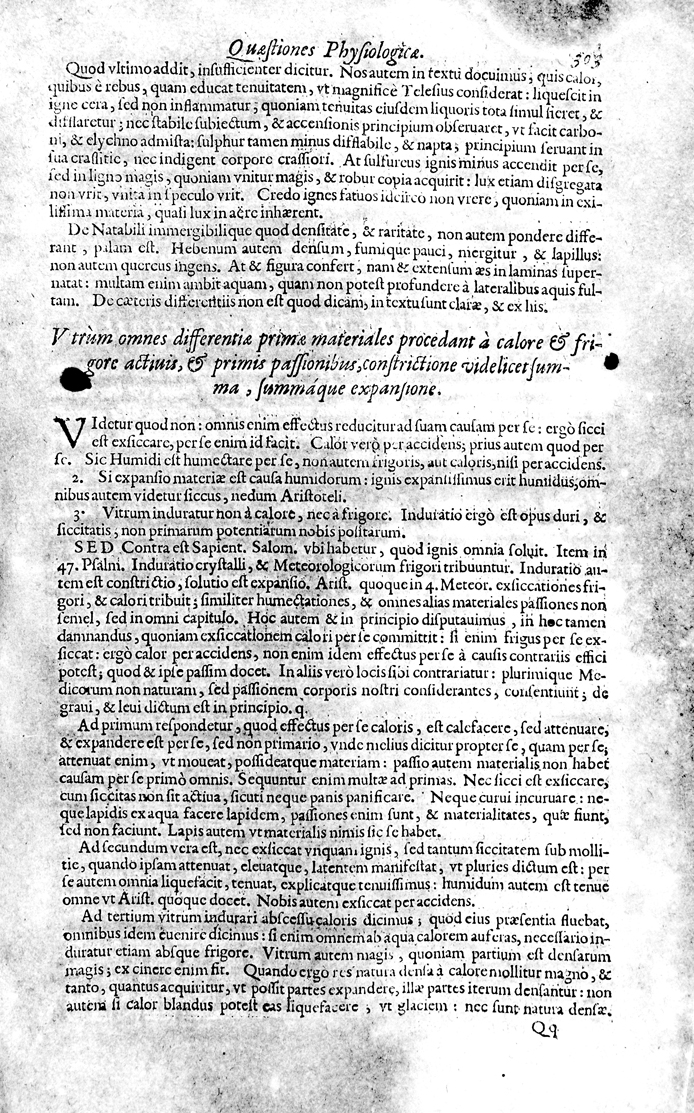 Quæſtiones Phyſiologicæ. 503
Quod vltimo addit, inſufficienter dicitur. Nos autem in textu docuimus; quis calor,
quibus è rebus, quam educat tenuitatem, vt magnificè Teleſius conſiderat: liqueſcit in
igne cera, ſed non inflammatur; quoniam tenuitas eiuſdem liquoris tota ſimul fieret, &
difflaretur; nec ſtabile ſubiectum, & accenſionis principium obſeruaret, vt facit carbo-
ni, & elychno admiſta: ſulphur tamen minus difflabile, & napta; principium ſeruant in
ſua craſſitie, nec indigent corpore craſſiori. At ſulfureus ignis minus accendit per ſe,
ſed in ligno magis, quoniam vnitur magis, & robur copia acquirit: lux etiam diſgregata
non vrit, vnita in ſpeculo vrit. Credo ignes fatuos idcirco non vrere, quoniam in exi-
liſſima materia, quaſi lux in aëre inhærent.
De Natabili immergibilique quod denſitate, & raritate, non autem pondere diffe-
rant, palam eſt. Hebenum autem denſum, fumique pauci, mergitur, & lapillus:
non autem quercus ingens. At & figura confert, nam & extenſum æs in laminas ſuper-
natat: multam enim ambit aquam, quam non poteſt profundere à lateralibus aquis ful-
tam. De cæteris differentiis non eſt quod dicam, in textu ſunt claræ, & ex his.
Vtrùm omnes differentiæ primæ materiales procedant à calore & fri-
gore actiuis, & primis paſſionibus, conſtrictione videlicet ſum-
ma, ſummáque expanſione.
VIdetur quod non: omnis enim effectus reducitur ad ſuam cauſam per ſe: ergò ſicci
eſt exſiccare, per ſe enim id facit. Calor verò per accidens; prius autem quod per
ſe. Sic Humidi eſt humectare per ſe, non autem frigoris, aut caloris, niſi per accidens.
2. Si expanſio materiæ eſt cauſa humidorum: ignis expanſiſſimus erit humidus, om-
nibus autem videtur ſiccus, nedum Ariſtoteli.
3. Vitrum induratur non à calore, nec à frigore. Induratio ergò eſt opus duri, &
ſiccitatis, non primarum potentiarum nobis poſitarum.
SED Contra eſt Sapient. Salom. vbi habetur, quod ignis omnia ſoluit. Item in
47. Pſalmi. Induratio cryſtalli, & Meteorologicorum frigori tribuuntur. Induratio au-
tem eſt conſtrictio, ſolutio eſt expanſio. Ariſt. quoque in 4. Meteor. exſiccationes fri-
gori, & calori tribuit; ſimiliter humectationes, & omnes alias materiales paſſiones non
ſemel, ſed in omni capitulo. Hoc autem & in principio diſputauimus, in hoc tamen
damnandus, quoniam exſiccationem calori per ſe committit: ſi enim frigus per ſe ex-
ſiccat: ergò calor per accidens, non enim idem effectus per ſe à cauſis contrariis effici
poteſt; quod & ipſe paſſim docet. In aliis verò locis ſibi contrariatur: plurimique Me-
dicorum non naturam, ſed paſſionem corporis noſtri conſiderantes, conſentiunt; de
graui, & leui dictum eſt in principio. q.
Ad primum reſpondetur, quod effectus per ſe caloris, eſt calefacere, ſed attenuare,
& expandere eſt per ſe, ſed non primario, vnde melius dicitur propter ſe, quam per ſe;
attenuat enim, vt moueat, poſſideatque materiam: paſſio autem materialis non habet
cauſam per ſe primò omnis. Sequuntur enim multæ ad primas. Nec ſicci eſt exſiccare,
cum ſiccitas non ſit actiua, ſicuti neque panis panificare. Neque curui incuruare: ne-
que lapidis ex aqua facere lapidem, paſſiones enim ſunt, & materialitates, quæ fiunt,
ſed non faciunt. Lapis autem vt materialis nimis ſic ſe habet.
Ad ſecundum vera eſt, nec exſiccat vnquam ignis, ſed tantum ſiccitatem ſub molli-
tie, quando ipſam attenuat, eleuatque, latentem manifeſtat, vt pluries dictum eſt: per
ſe autem omnia liquefacit, tenuat, explicatque tenuiſſimus: humidum autem eſt tenue
omne vt Ariſt. quoque docet. Nobis autem exſiccat per accidens.
Ad tertium vitrum indurari abſceſſu caloris dicimus; quod eius præſentia fluebat,
omnibus idem euenire dicimus: ſi enim omnem ab aqua calorem auferas, neceſſario in-
duratur etiam abſque frigore. Vitrum autem magis, quoniam partium eſt denſarum
magis; ex cinere enim fit. Quando ergò res natura denſa à calore mollitur magno, &
tanto, quantus acquiritur, vt poſſit partes expandere, illæ partes iterum denſantur: non
autem ſi calor blandus poteſt eas liquefacere, vt glaciem: nec ſunt natura denſæ.
Qq